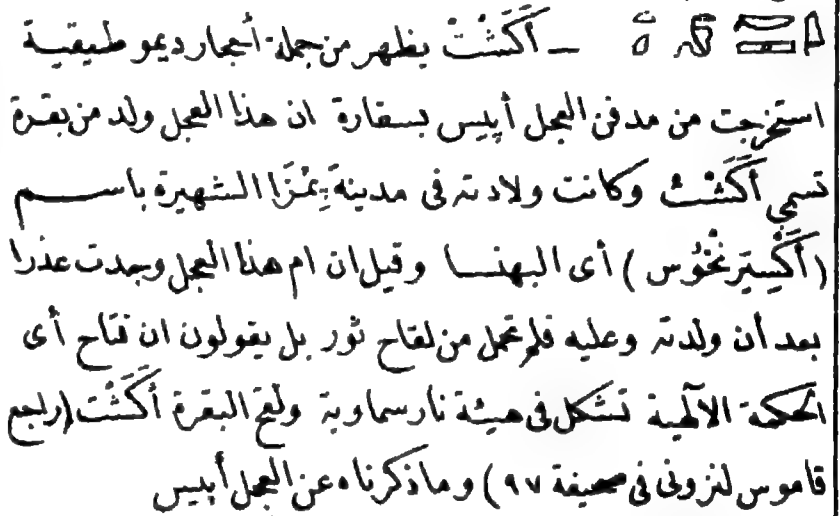 ـ أَكَشْتْ يظهر من جملة أحجار ديموطيقية
استخرجت من مدفن العجل أپيس بسقارة ان هذا العجل ولد من بقرة
تسمى أَكَشْتْ وكانت ولادته فى مدينة پِمْزَا الشهيرة باسم
(أُكْسِيَرنْخُوس) أى البهنسا وقيل ان ام هذا العجل وجدت عذرا
بعد أن ولدته وعليه فلم تحمل من لقاح ثور بل يقولون ان فتاح أى
الحكمة الآلهية تشكل فى هيئة نار سماوية ولقح البقرة أَكَشْتْ (راجع
قاموس لنزونى فى صحيفة ٩٧) وما ذكرناه عن العجل أپيس